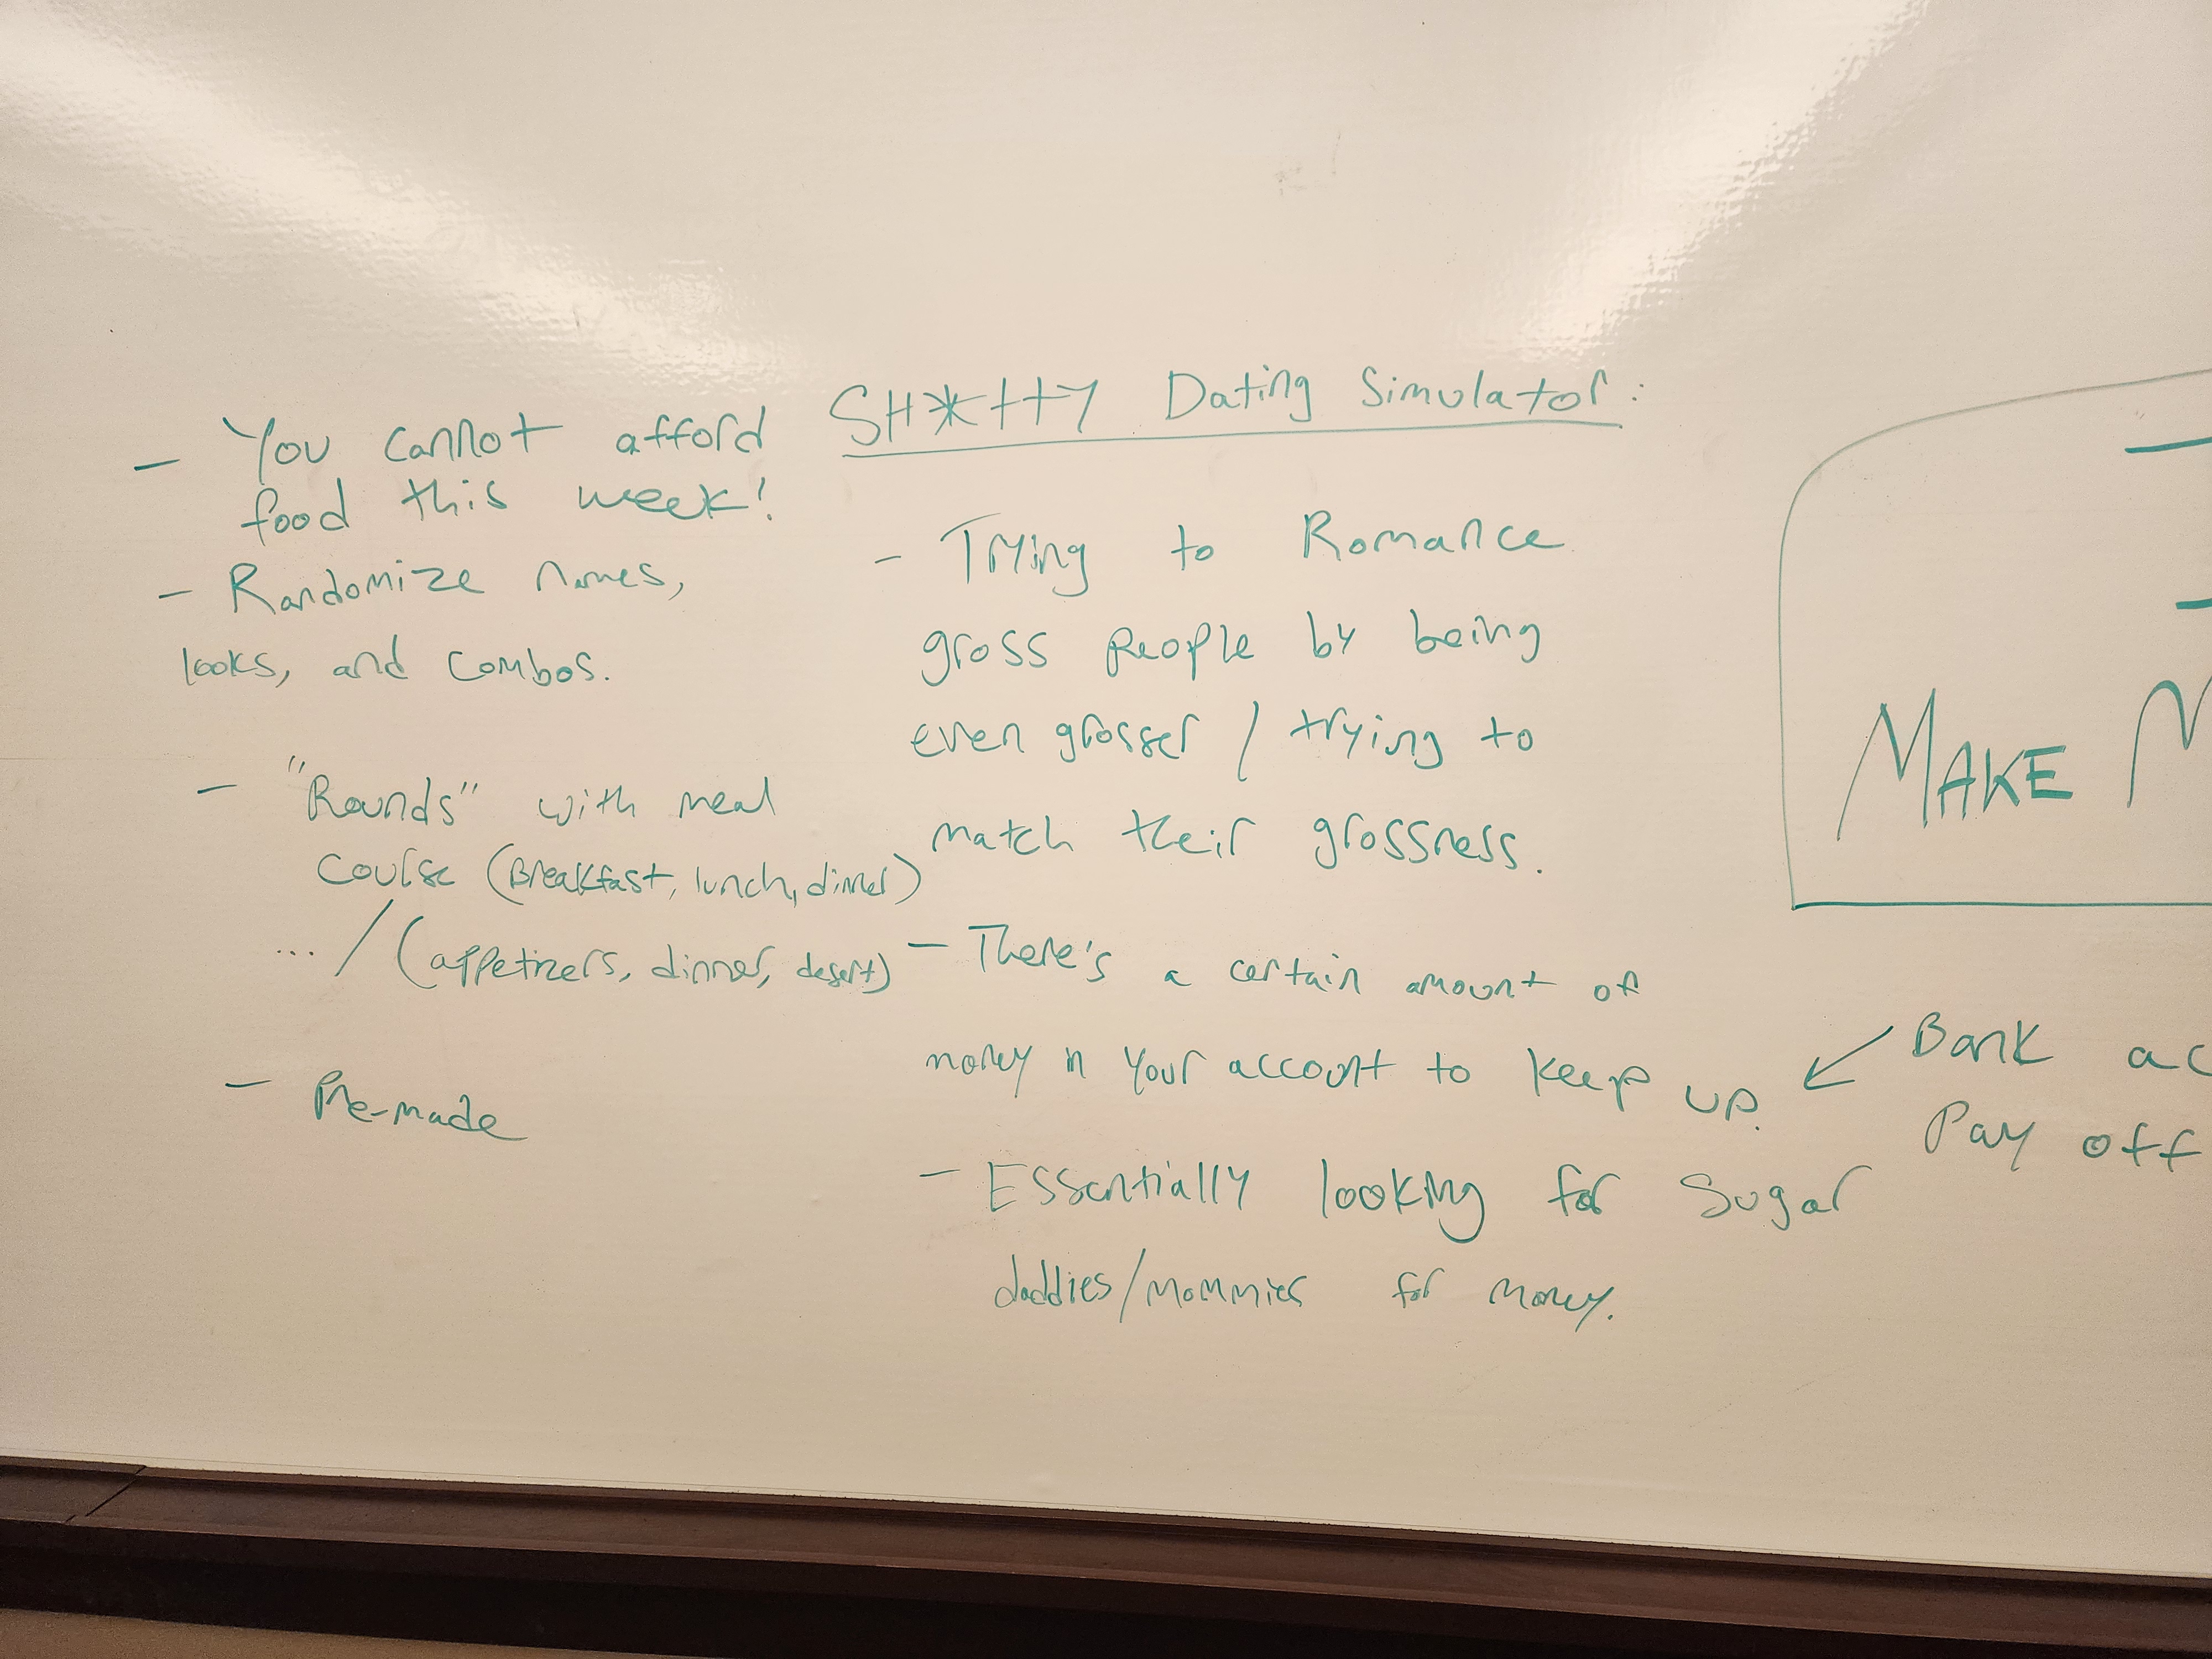 SH*tty Dating Simulator:
- You cannot afford
food this week!
- Randomize names,
looks, and combos.
- "Rounds" with meal
course (Breakfast, lunch, dinner)
... / (appetizers, dinner, desert)
- Pre-made
- Trying to Romance
gross people by being
even grosser / trying to
match their grossness.
- There's a certain amount of
money in your account to keep up.
- Essentially looking for sugar
daddies/mommies for money.
MAKE
Bank
Pay off